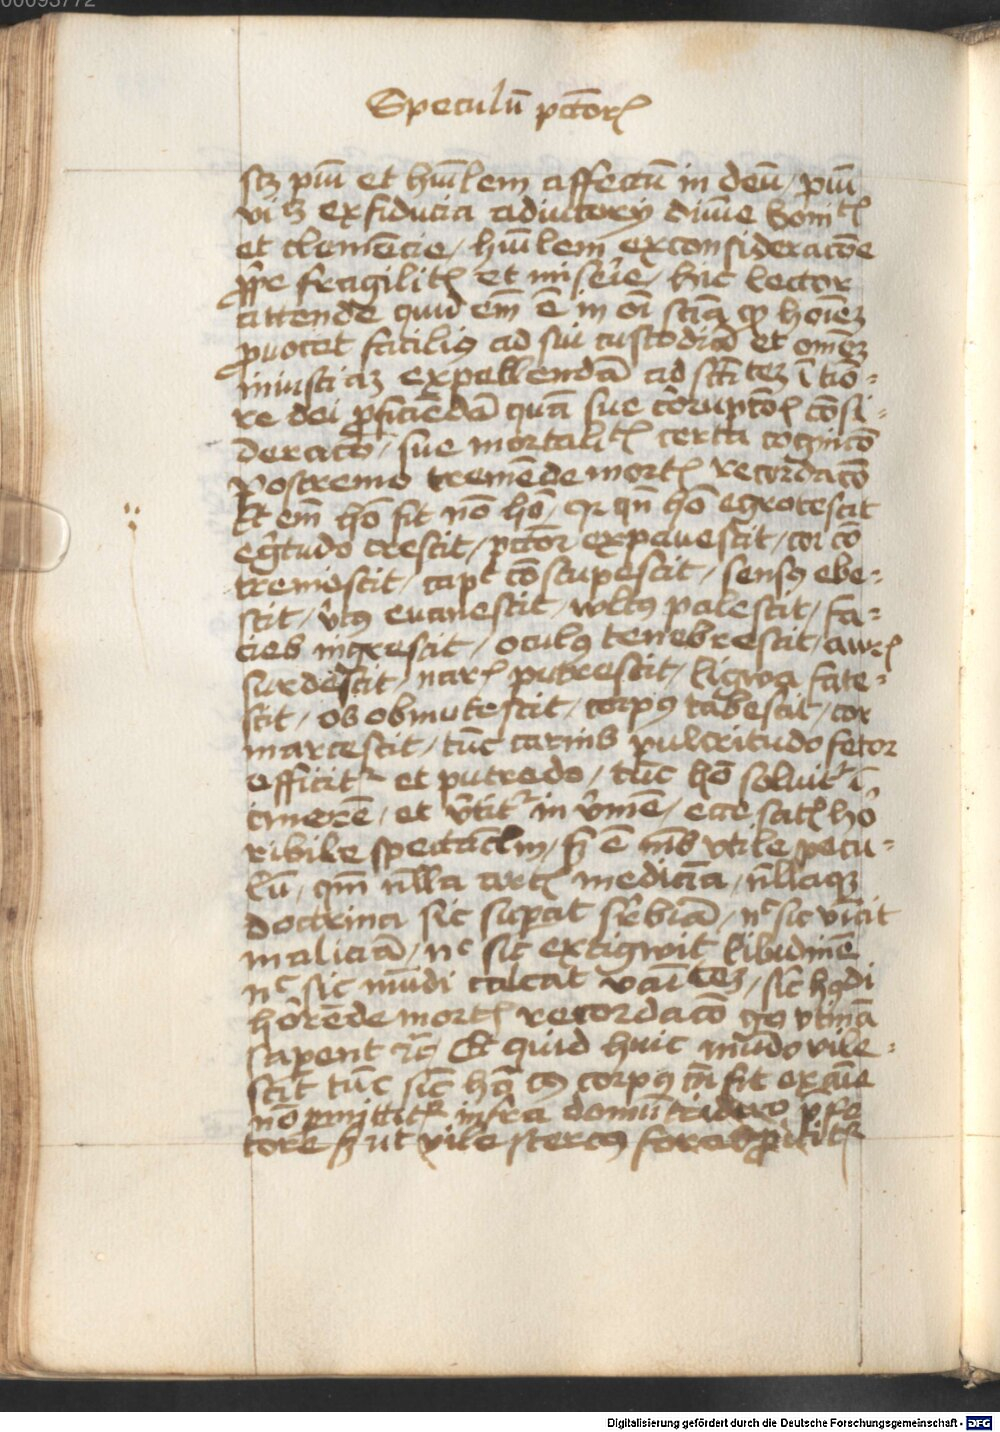 00093772
Speculū pctōrꝭ
scꝫ piū et hūilem affectū in deū / piū
viꝫ ex fiducia adiutorij diuīe bonitꝭ
et clemēcie / hūilem ex consideracōe
ꝓprie fragilitꝭ et miserie / hic lector
attende quid em̄ ē in oī sciā qđ hoīeꝫ
ꝓuocet facilius ad sui custodiā et omēꝫ
iniusticiaꝫ expellendā ad scītteꝫ ī tio-
re dei ꝑficiēdā quā sue corrupcōꝭ cōsi-
deracō / sue mortalitꝭ certa cognicō
postremo tremēde mortꝭ recordacō
Et em̄ hō fit nō hō / qꝛ qn̄ hō egrotescit
egritudo crescit / pctōr expauescit / cor cō
tremescit / caput cōstupescit / sensus ebe-
scit / virtus euanescit / wltus palescit / fa-
cies nigrescit / oculus tenebrescit / aurꝭ
surdescit / narꝭ putrescit / ligwa fate-
scit / os obmutescit / corpus tabescit / cor
marcescit / tūc carnis pulcritudo fetor
efficitr et putredo / tūc hō soluitr ī
cinerē / et v̄titr in v̄mē / ecce satꝭ ho
ribile spectaclm / sꝫ ē nīs vtile specu-
lū / qm̄ nlla artꝭ medicina / nllaqꝫ
doctrina sic suꝑat suꝑbiā / nc sic vincit
maliciā / nc sic extigwit libidinē
nc sic mūdi calcat vaītteꝫ / sic hꝰdi
horrēde mortꝭ recordacō qꝰ vtinā
saperent rc̄ Et quid huic mūdo vile-
scit tūc sic hō cꝰ corpus cū fit exaīe
nō ꝑmittitr infra domū triduo p̄ fe
tore sꝫ ut vile stercus foras ꝓicitr
Digitalisierung gefördert durch die Deutsche Forschungsgemeinschaft - DFG